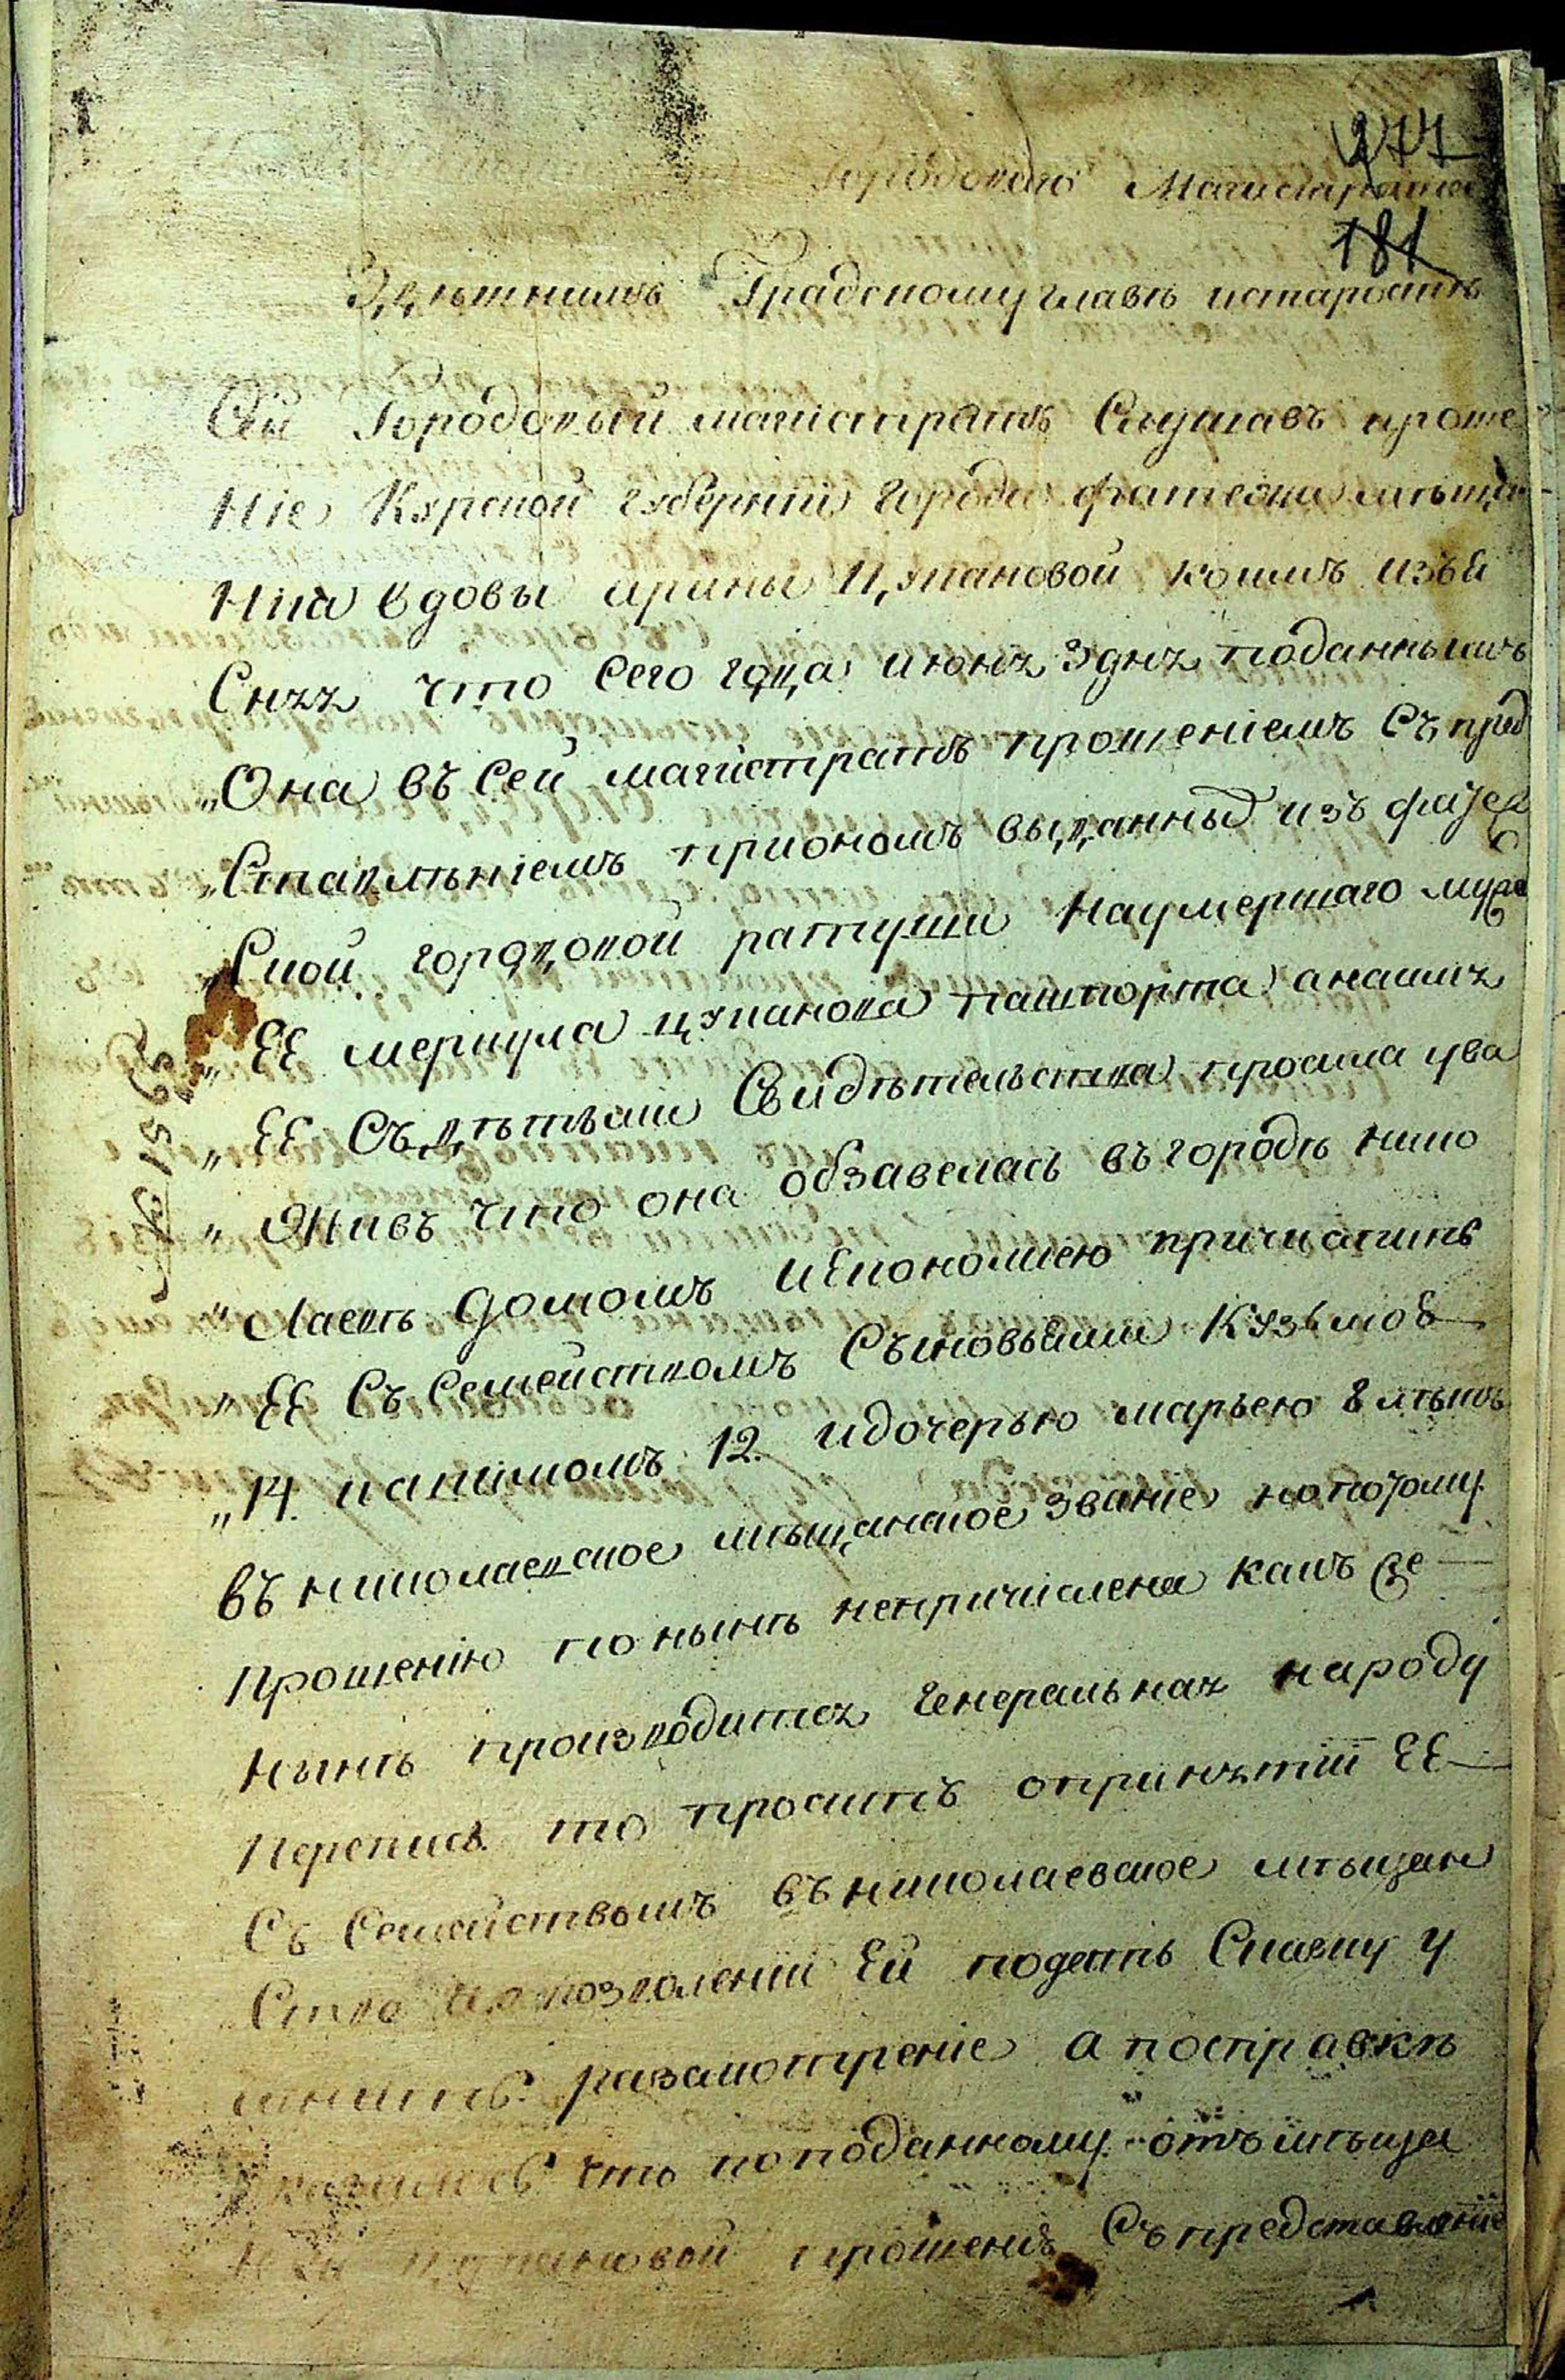 277
Городоваго Магистрата
181
Здѣшнимъ Градскому главѣ истаростѣ
Сей Городовый магiстратъ Слушавъ проше
Нiе Курской губернiи города фатежа мѣща
Нка вдовы арины Цукановой коимъ изъя
Сняя что Сего года июня 3 дня поданнымъ
„Она въ Сей магiстратъ прошенiемъ Съ пред
„Ставленiемъ приономъ выданныя изъ фатеж
„Ской городовой ратуши Наумершаго мужа
„ ЕЕ меркула цуканова пашпорта анаимя
„ ЕЕ Съ дѣтьми Свидѣтельства просила ува
„ Живъ что она обзавелась въ городѣ нико
„ Лаевѣ домомъ иЕкономiею причислить
„ ЕЕ Съ Семействомъ Сыновьями Кузьмою
„ 14. иапимомъ 12. идочерью марьею 8 лѣтъ
въ николаевское мѣщанское званiе нопотому
Прошенiю по нынѣ непричислена какъ же
Нынѣ производится генеральная народу
Перепись то проситъ опринятiи ЕЕ
Съ Семействомъ въ николаевское мѣщан
Ство ипозволенiи Ей подать Скаску у
чинить разсмотренiе а посправкѣ
оказалось что по поданному отъ мѣща
Нки цукановой прошенiя Съ представленiе
№ 1565